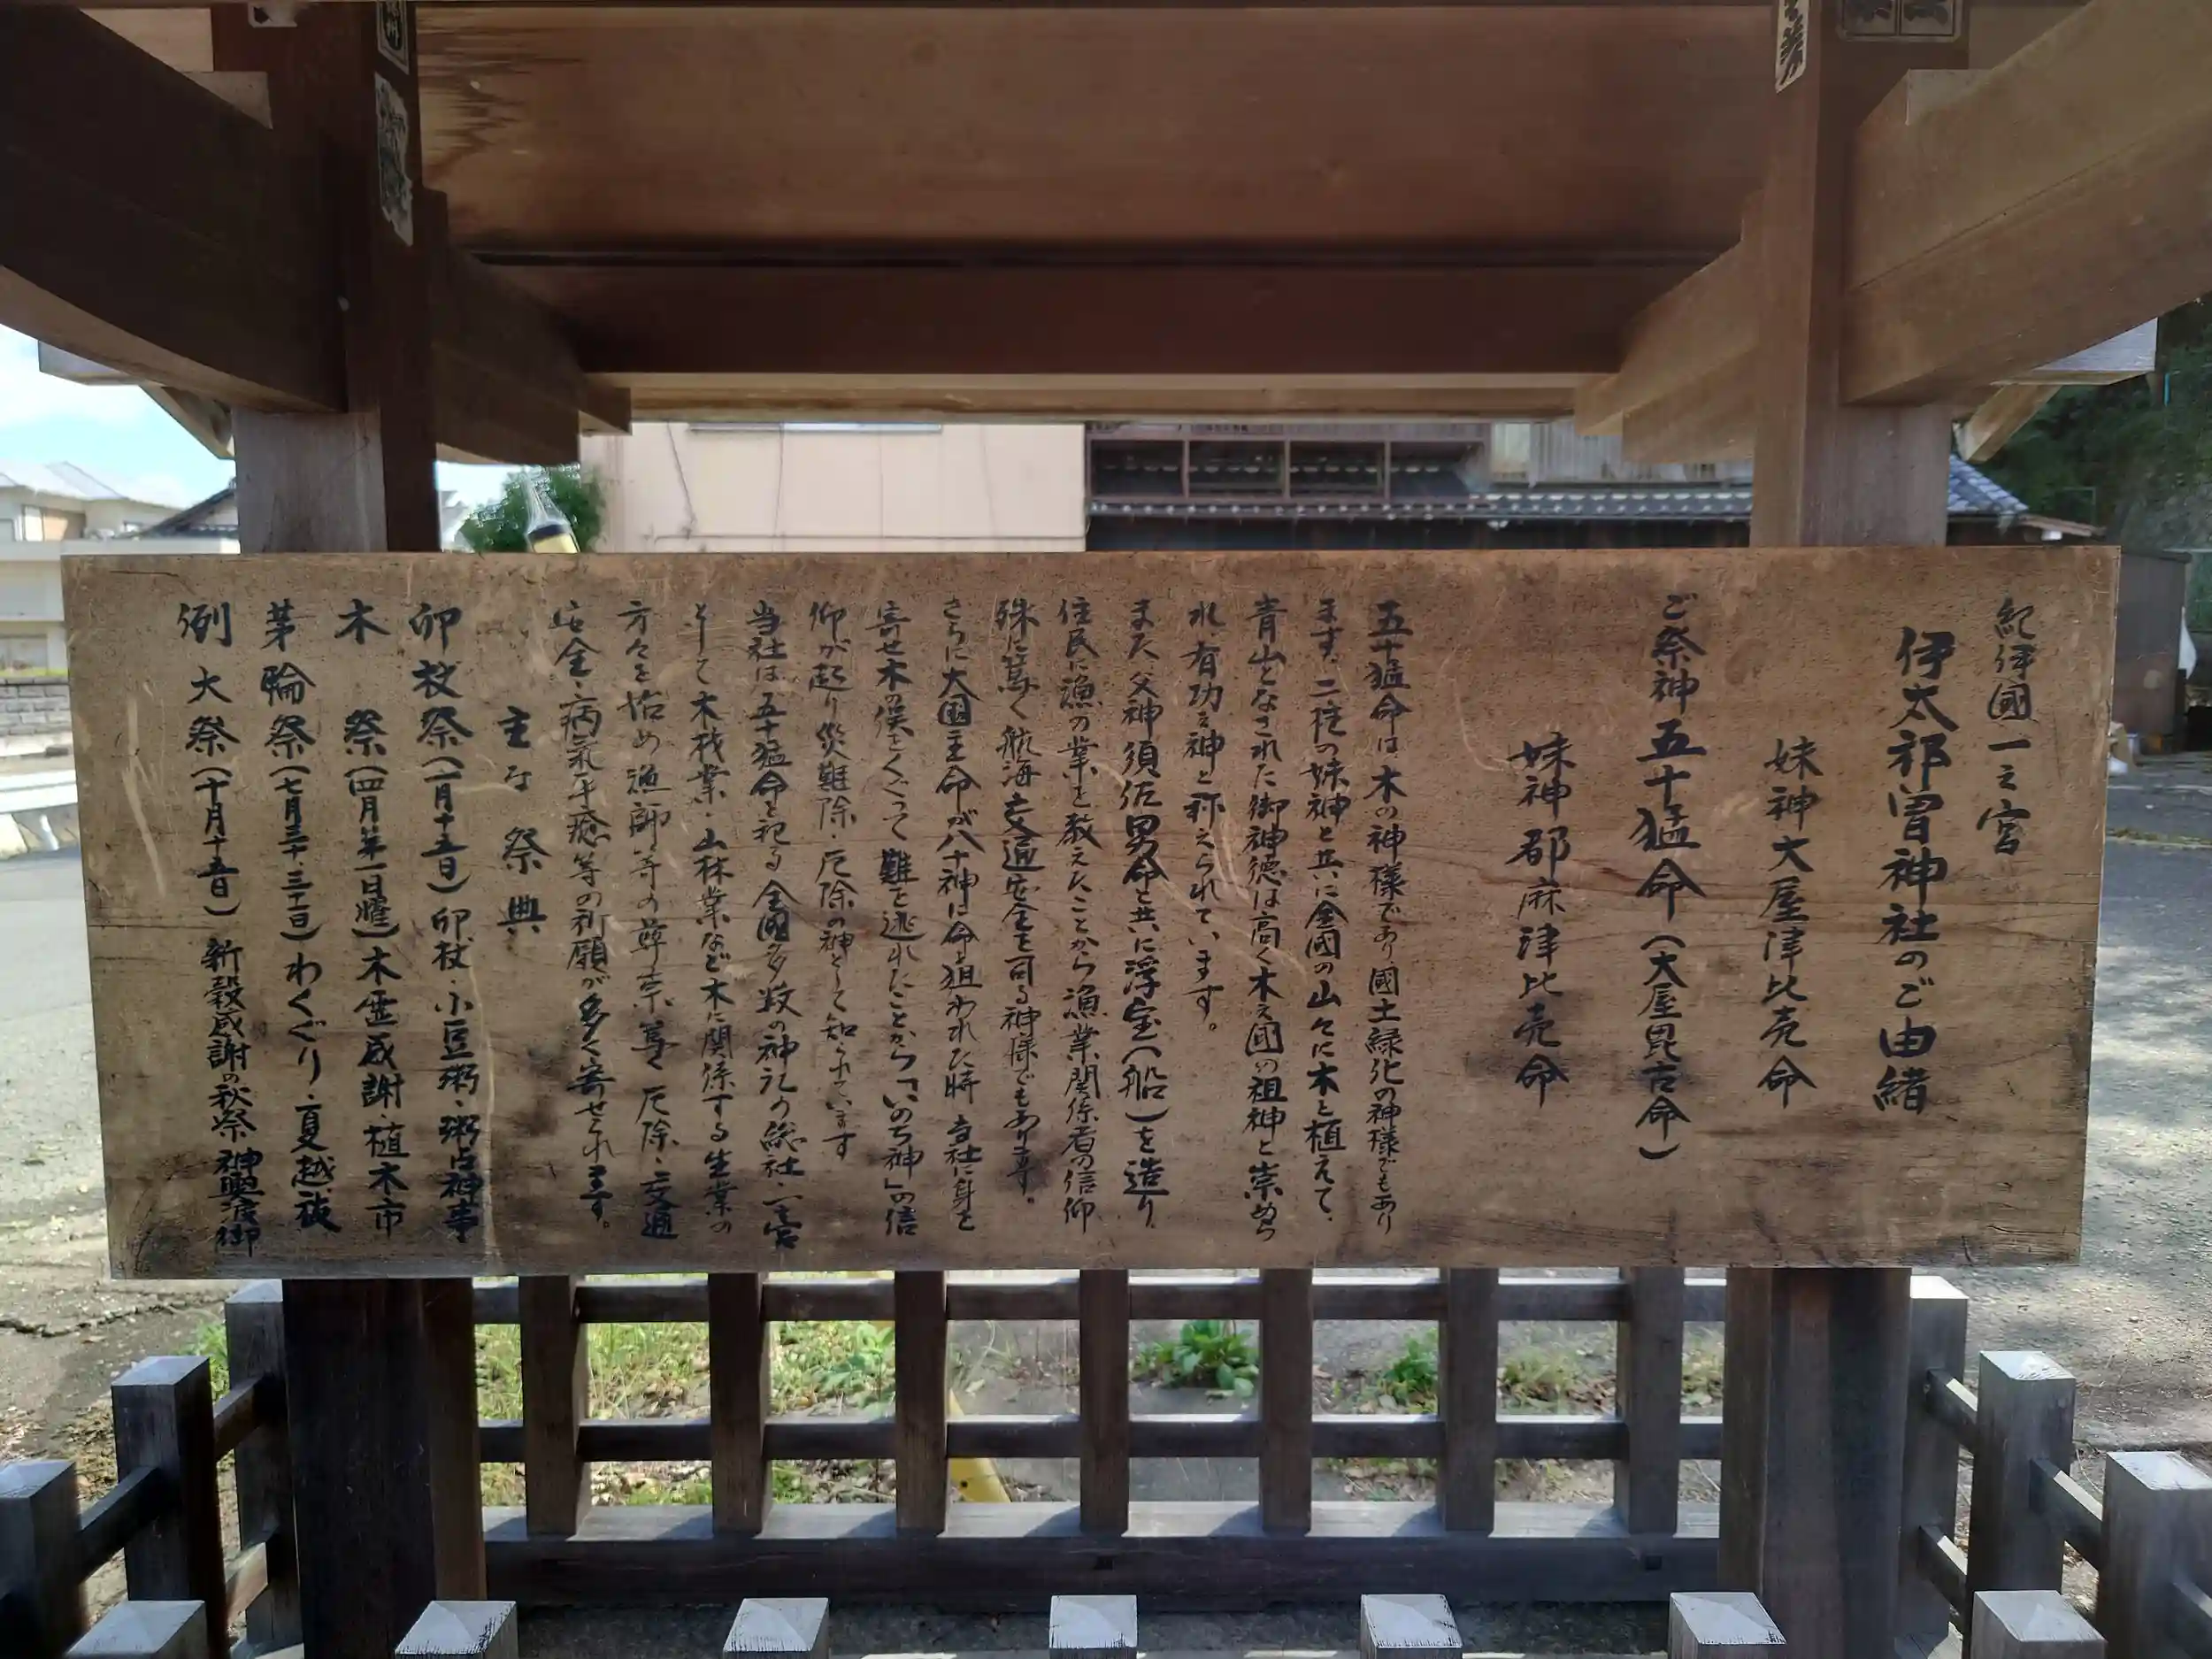 紀伊國一之宮
伊太祁曽神社のご由緒
妹神大屋津比売命
ご祭神 五十猛命(大屋毘古命)
妹神都麻津比売命
五十猛命は木の神様であり國土緑化の神様でもあり
ます。二柱の妹神と共に全國の山々に木を植えて、
青山となされた御神徳は高く木之國の祖神と崇めら
れ、有功之神と称えられています。
また、父神須佐男命と共に浮宝(船)を造り
住民に漁の業を教えたことから漁業関係者の信仰
殊に篤く航海交通安全を司る神様でもあります。
さらに大国主命が八十神に命を狙われた時 当社に身を
寄せ木の俣をくぐって難を逃れたことから「いのち神」の信
仰が起り災難除・厄除の神として知られています
当社は五十猛命を祀る全國多数の神社の総社・一之宮
として木材業・山林業など木に関係する生業の
方々を始め漁師等の尊崇篤く厄除・交通
安全・病氣平癒等の祈願が多く寄せられます。
主な祭典
卯杖祭(一月十五日)卯杖・小豆粥・粥占神事
木祭(四月第一日曜)木霊感謝・植木市
茅輪祭(七月三十・三十一日)わくぐり・夏越祓
例大祭(十月十五日)新穀感謝の秋祭 神輿渡御